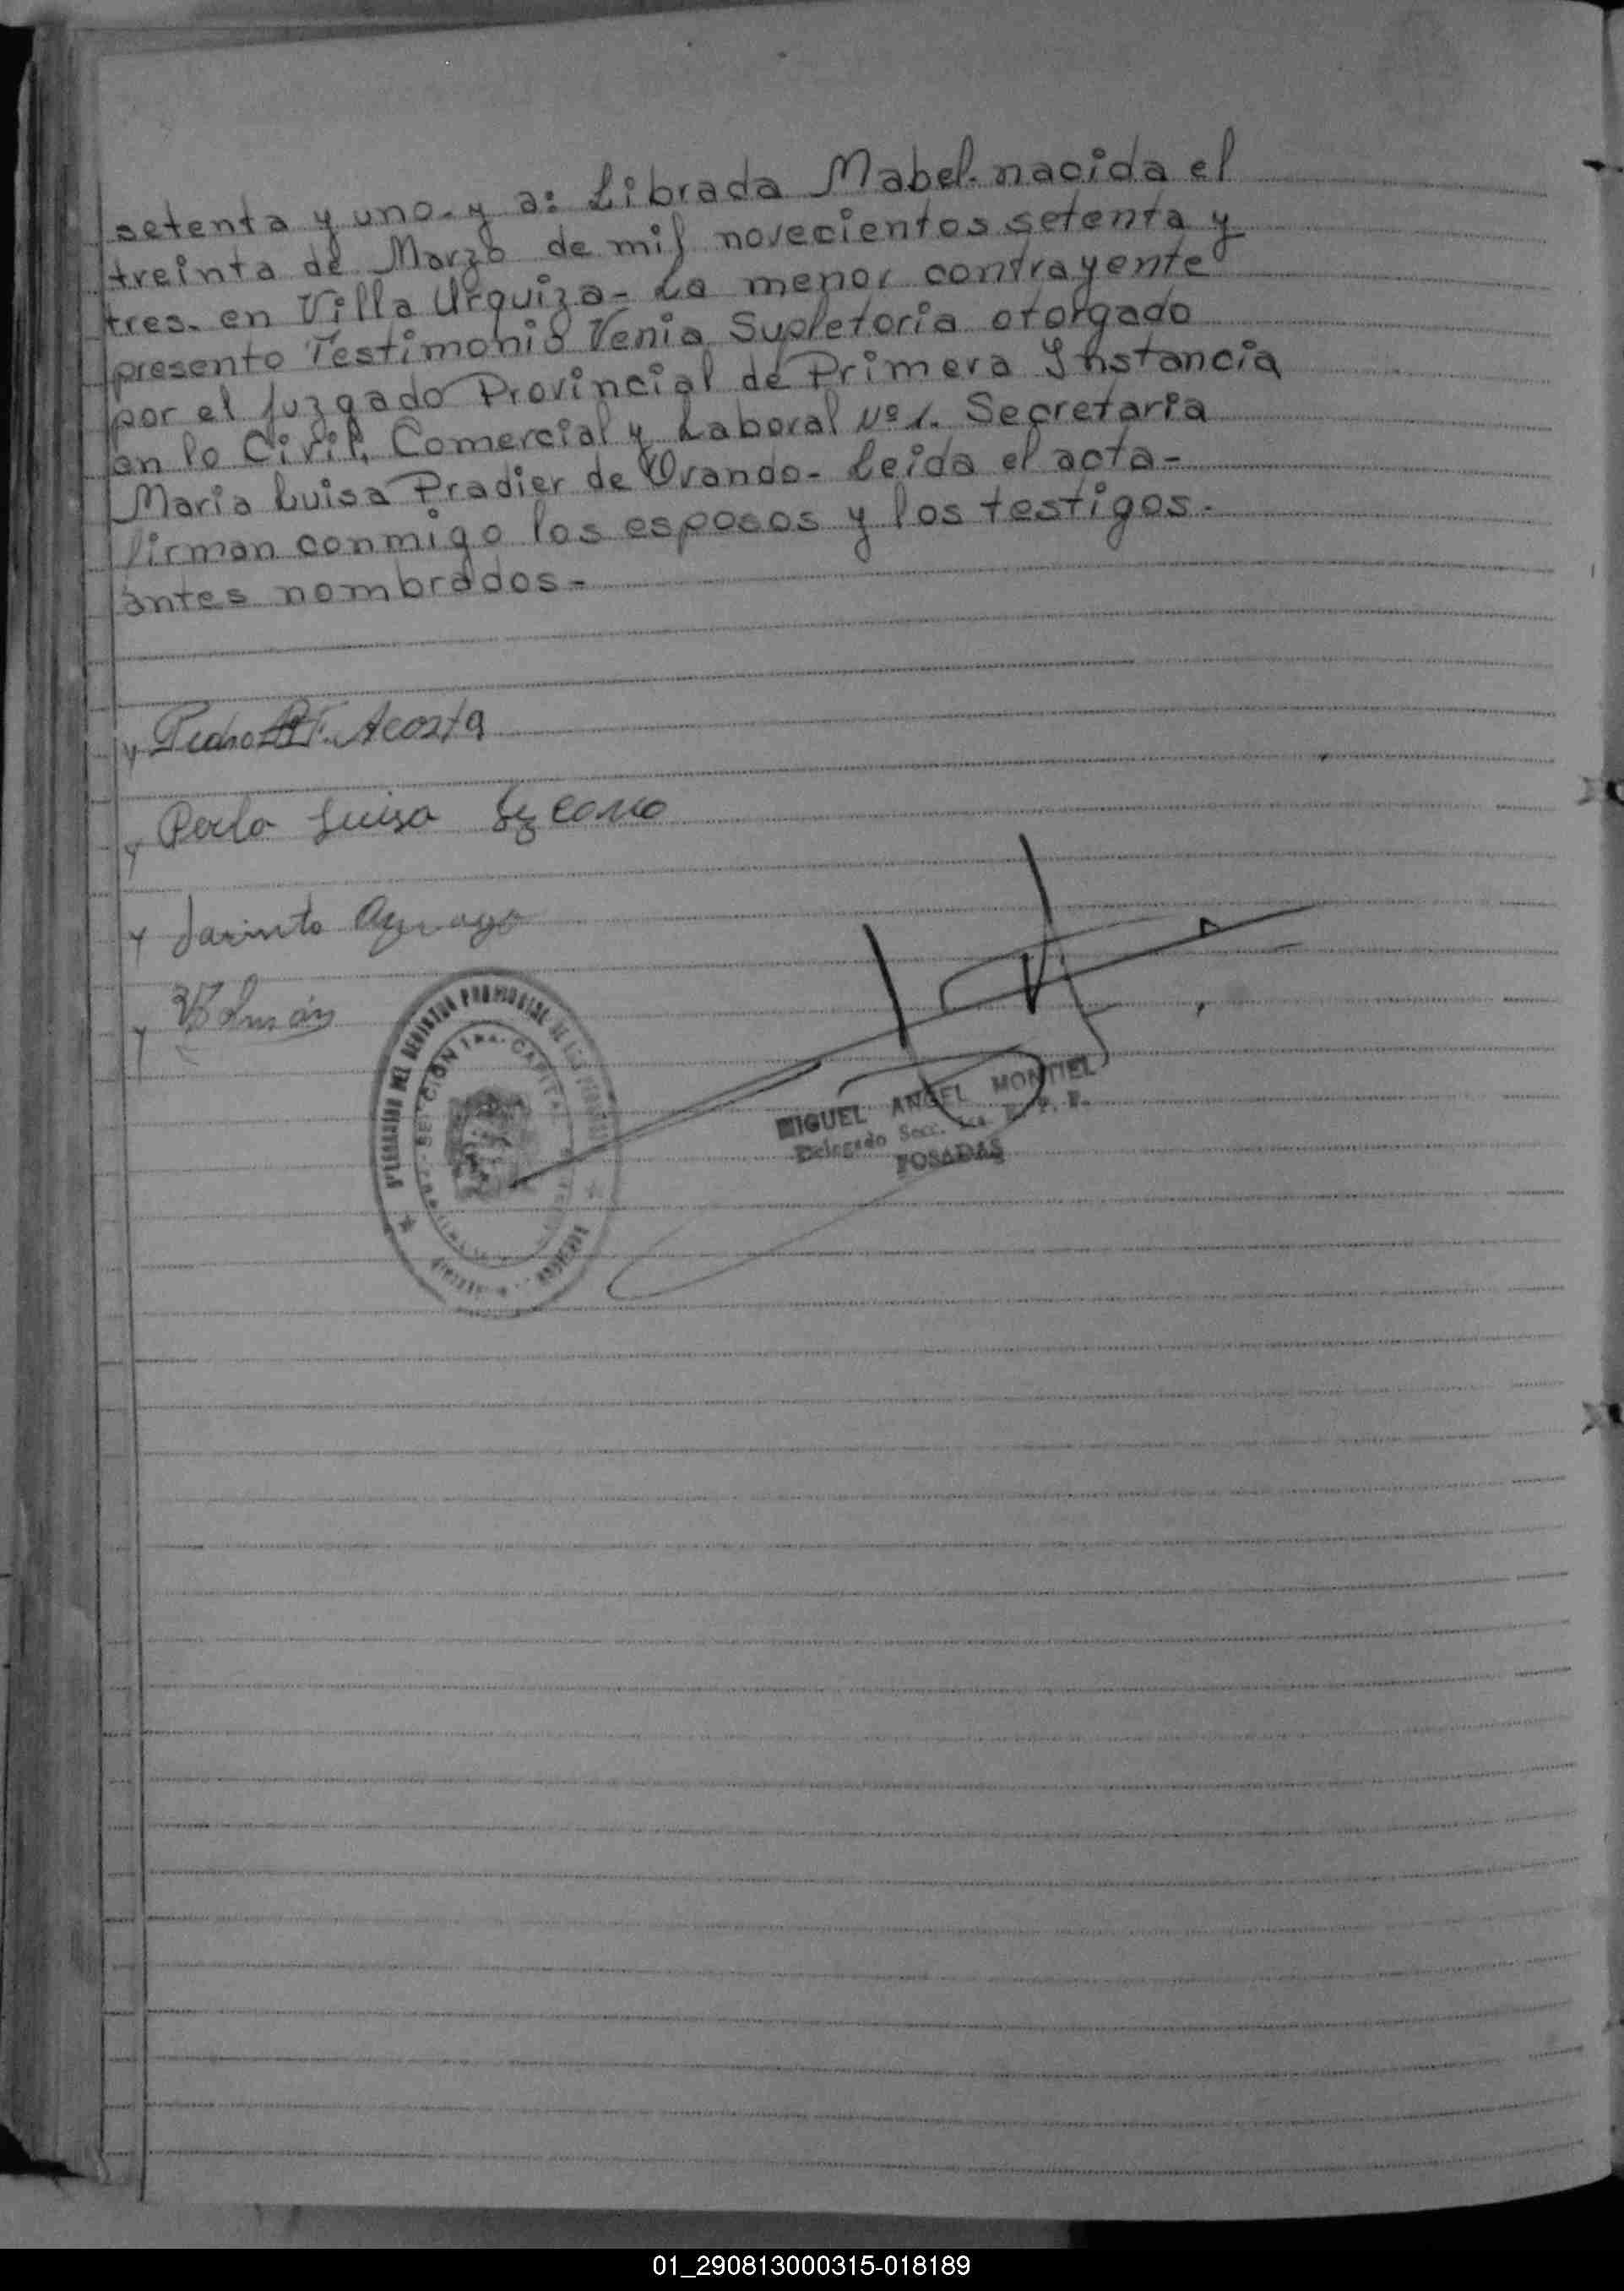 setenta y uno. y a: Librada Mabel. nacida el
treinta de Marzo de mil novecientos setenta y
tres. en Villa Urquiza - La menor contrayente
presento Testimonio Venia Supletoria otorgado
por el Juzgado Provincial de Primera Instancia
en lo Civil, Comercial y Laboral Nº 1. Secretaria
Maria Luisa Pradier de Ovando - Leida el acta -
firman conmigo los esposos y los testigos.
antes nombrados -
Pedro Acosta
Perla Luisa Lezcano
Jacinto
SECCION 1ra. CAPITAL
MIGUEL ANGEL MONTIEL
Delegado Secc. 1ra. R. P. P.
POSADAS
01_290813000315-018189